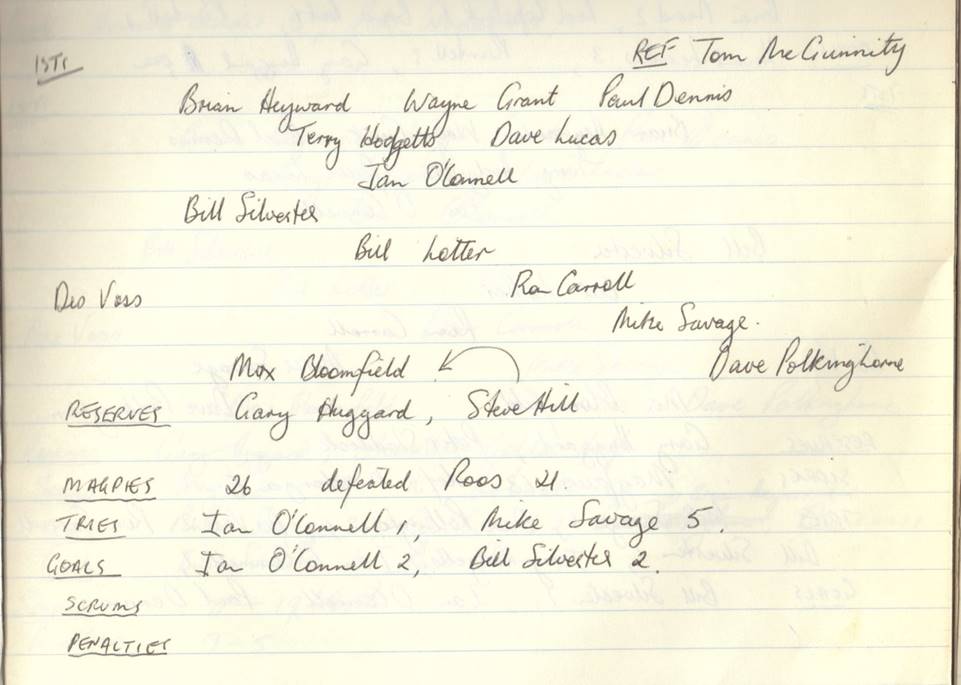 1STS REF Tom McGunnity
Brian Heyward Wayne Grant Paul Dennis
Terry Hodgetts Dave Lucas
Ian O'Connell
Bill Silvester
Bill Lotter
Ron Carroll
Des Voss
Mike Savage.
Dave Polkinghorne
Max Bloomfield
RESERVES Gary Huggard, Steve Hill
MAGPIES 26 defeated Roos 21.
TRIES Ian O'Connell 1, Mike Savage 5.
GOALS Ian O'Connell 2, Bill Silvester 2.
SCRUMS
PENALTIES